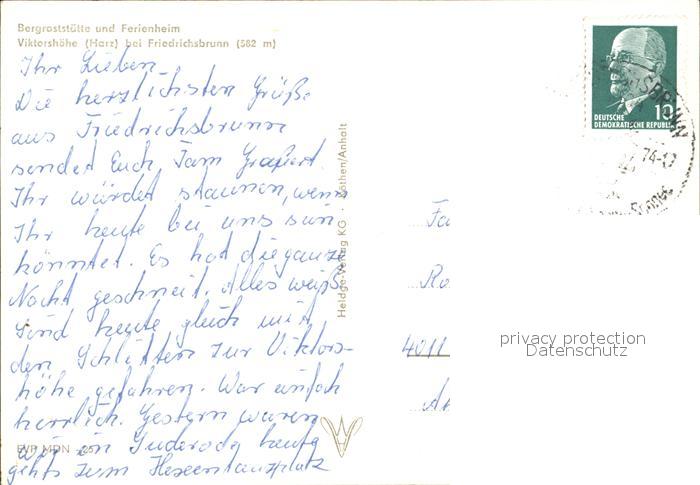 Bergraststätte und Ferienheim
Viktorshöhe (Harz) bei Friedrichsbrunn (582 m)
Ihr Lieben
Die herzlichsten Grüße
aus Friedrichsbrunn
sendet Euch Fam
Ihr würdet staunen, wenn
Ihr heute bei uns sein
könntet. Es hat die ganze
Nacht geschneit. Alles weiß.
Sind heute gleich mit
den Schlitten zur Viktors-
höhe gefahren. War einfach
herrlich. Gestern waren
wir in Suderode heute
gehts zum Hexentanzplatz
EVP MDN -,25
Heldge-Verlag KG · Köthen/Anhalt
10
DEUTSCHE
DEMOKRATISCHE REPUBLIK
74-17
Fa
Ro
4011
privacy protection
Datenschutz